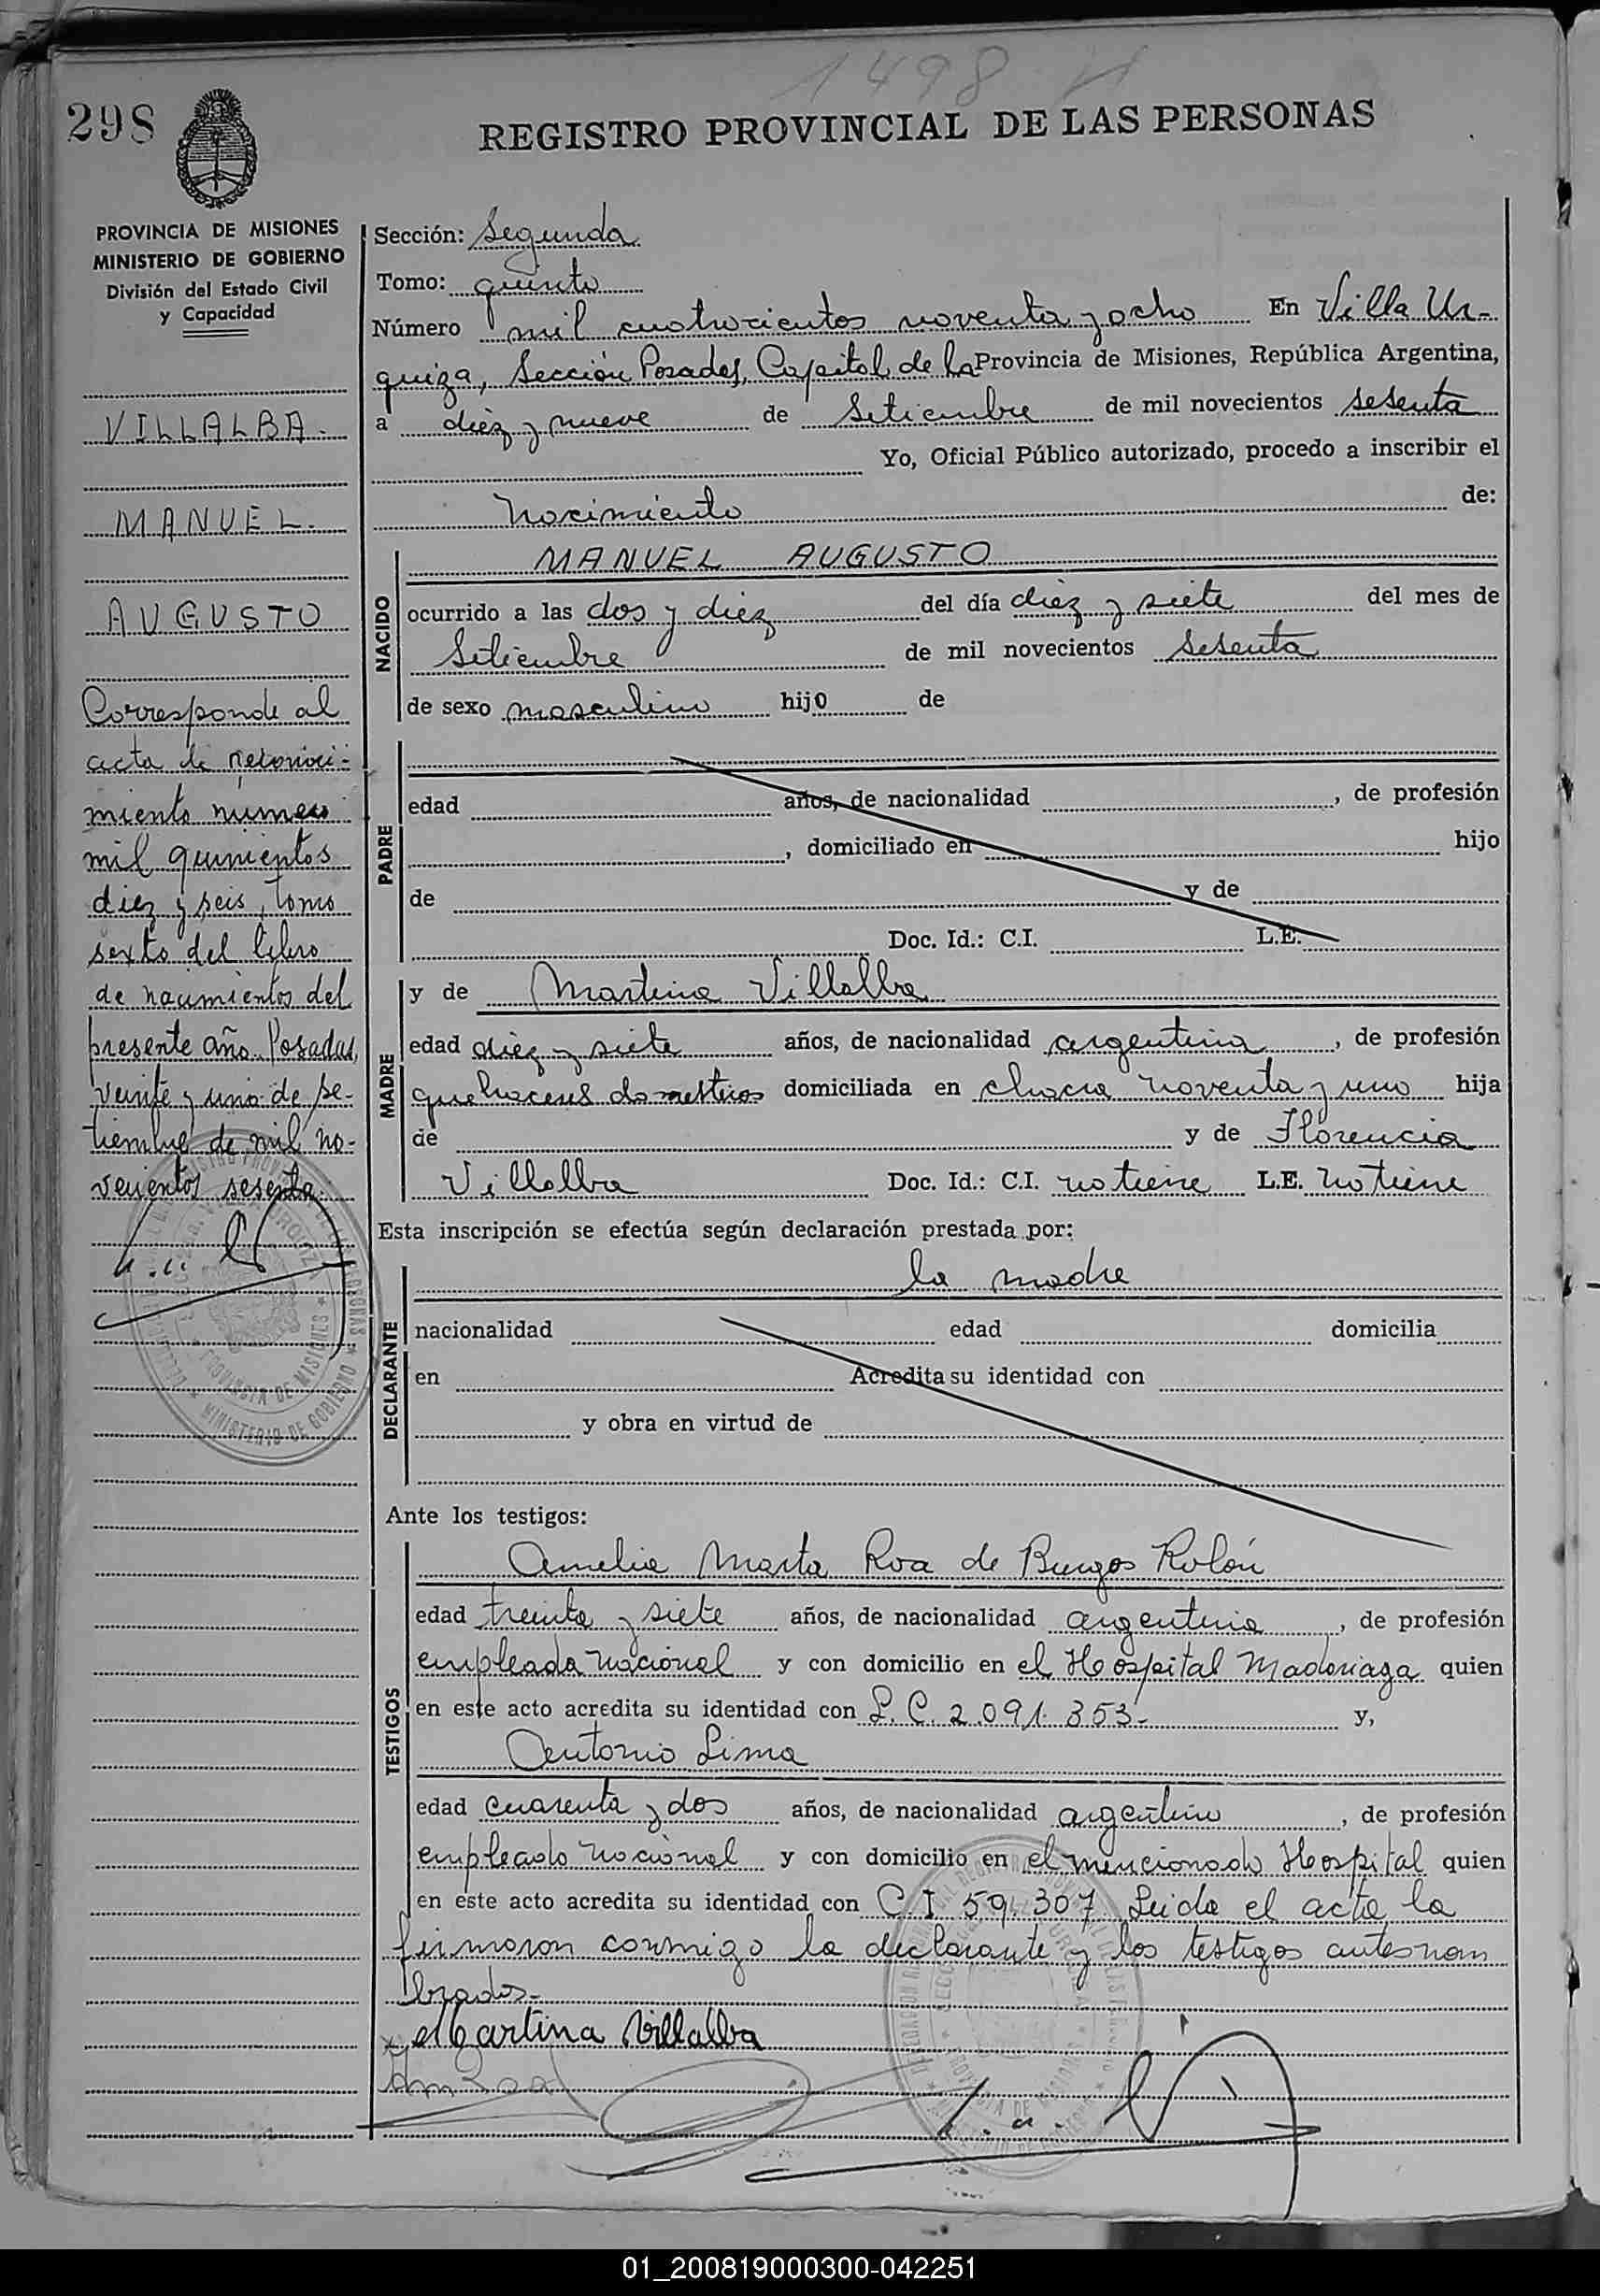 1498
298
REGISTRO PROVINCIAL DE LAS PERSONAS
PROVINCIA DE MISIONES
MINISTERIO DE GOBIERNO
División del Estado Civil
y Capacidad
VILLALBA.
MANUEL.
AUGUSTO
Corresponde al
acta de reconoci-
miento numero
mil quinientos
diez y seis, tomo
sexto del libro
de nacimientos del
presente año. Posadas,
veinte y uno de se-
tiembre de mil no-
vecientos sesenta.
Sección: Segunda
Tomo: quinto
Número mil cuatrocientos noventa y ocho En Villa Ur-
quiza, Sección Posadas, Capital de la Provincia de Misiones, República Argentina,
a diez y nueve de Setiembre de mil novecientos sesenta
Yo, Oficial Público autorizado, procedo a inscribir el
Nacimiento de:
NACIDO
MANUEL AUGUSTO
ocurrido a las dos y diez del día diez y siete del mes de
Setiembre de mil novecientos sesenta
de sexo masculino hijo de
PADRE
edad años, de nacionalidad , de profesión
, domiciliado en hijo
de y de
Doc. Id.: C.I. L.E.
MADRE
y de Martina Villalba
edad diez y siete años, de nacionalidad argentina, de profesión
quehaceres domesticos domiciliada en chacra noventa y uno hija
de y de Florencia
Villalba Doc. Id.: C.I. no tiene L.E. no tiene
Esta inscripción se efectúa según declaración prestada por:
la madre
DECLARANTE
nacionalidad edad domicilia
en Acredita su identidad con
y obra en virtud de
Ante los testigos:
TESTIGOS
Amelia Marta Roa de Burgos Rolón
edad treinta y siete años, de nacionalidad argentina, de profesión
empleada nacional y con domicilio en el Hospital Madariaga quien
en este acto acredita su identidad con L.C. 2.091.353- y,
Antonio Lima
edad cuarenta y dos años, de nacionalidad argentino, de profesión
empleado nacional y con domicilio en el mencionado Hospital quien
en este acto acredita su identidad con C I 59.307 Leida el acta la
firmaron conmigo la declarante y los testigos antes nom
brados.-
Martina Villalba
AmRoa
01_200819000300-042251